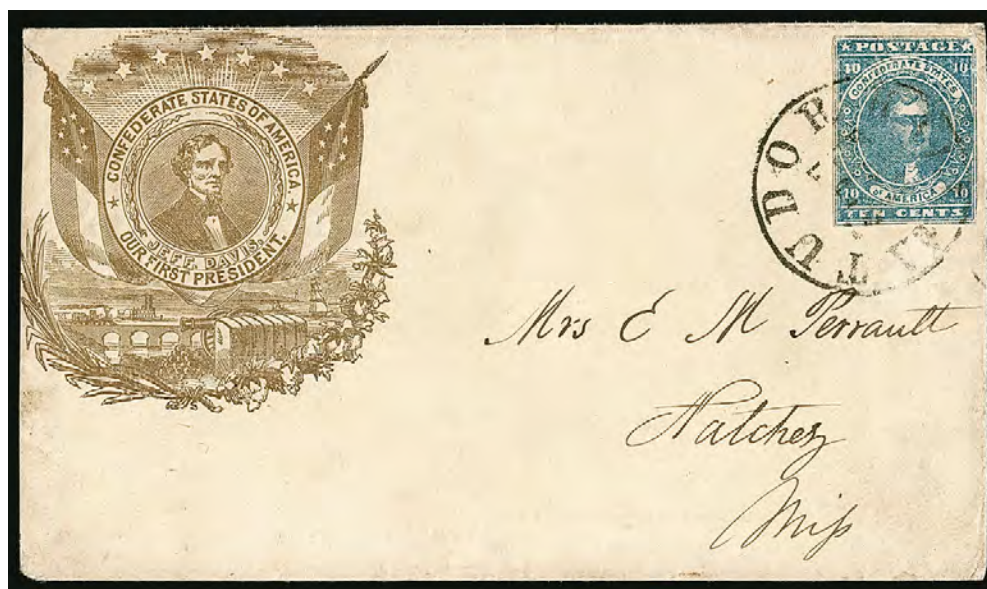 CONFEDERATE STATES OF AMERICA.
JEFF. DAVIS,
OUR FIRST PRESIDENT.
POSTAGE
10 10
CONFEDERATE STATES
OF AMERICA
10 10
TEN CENTS
TUDOR
Mrs E M Perrault
Natchez
Miſs